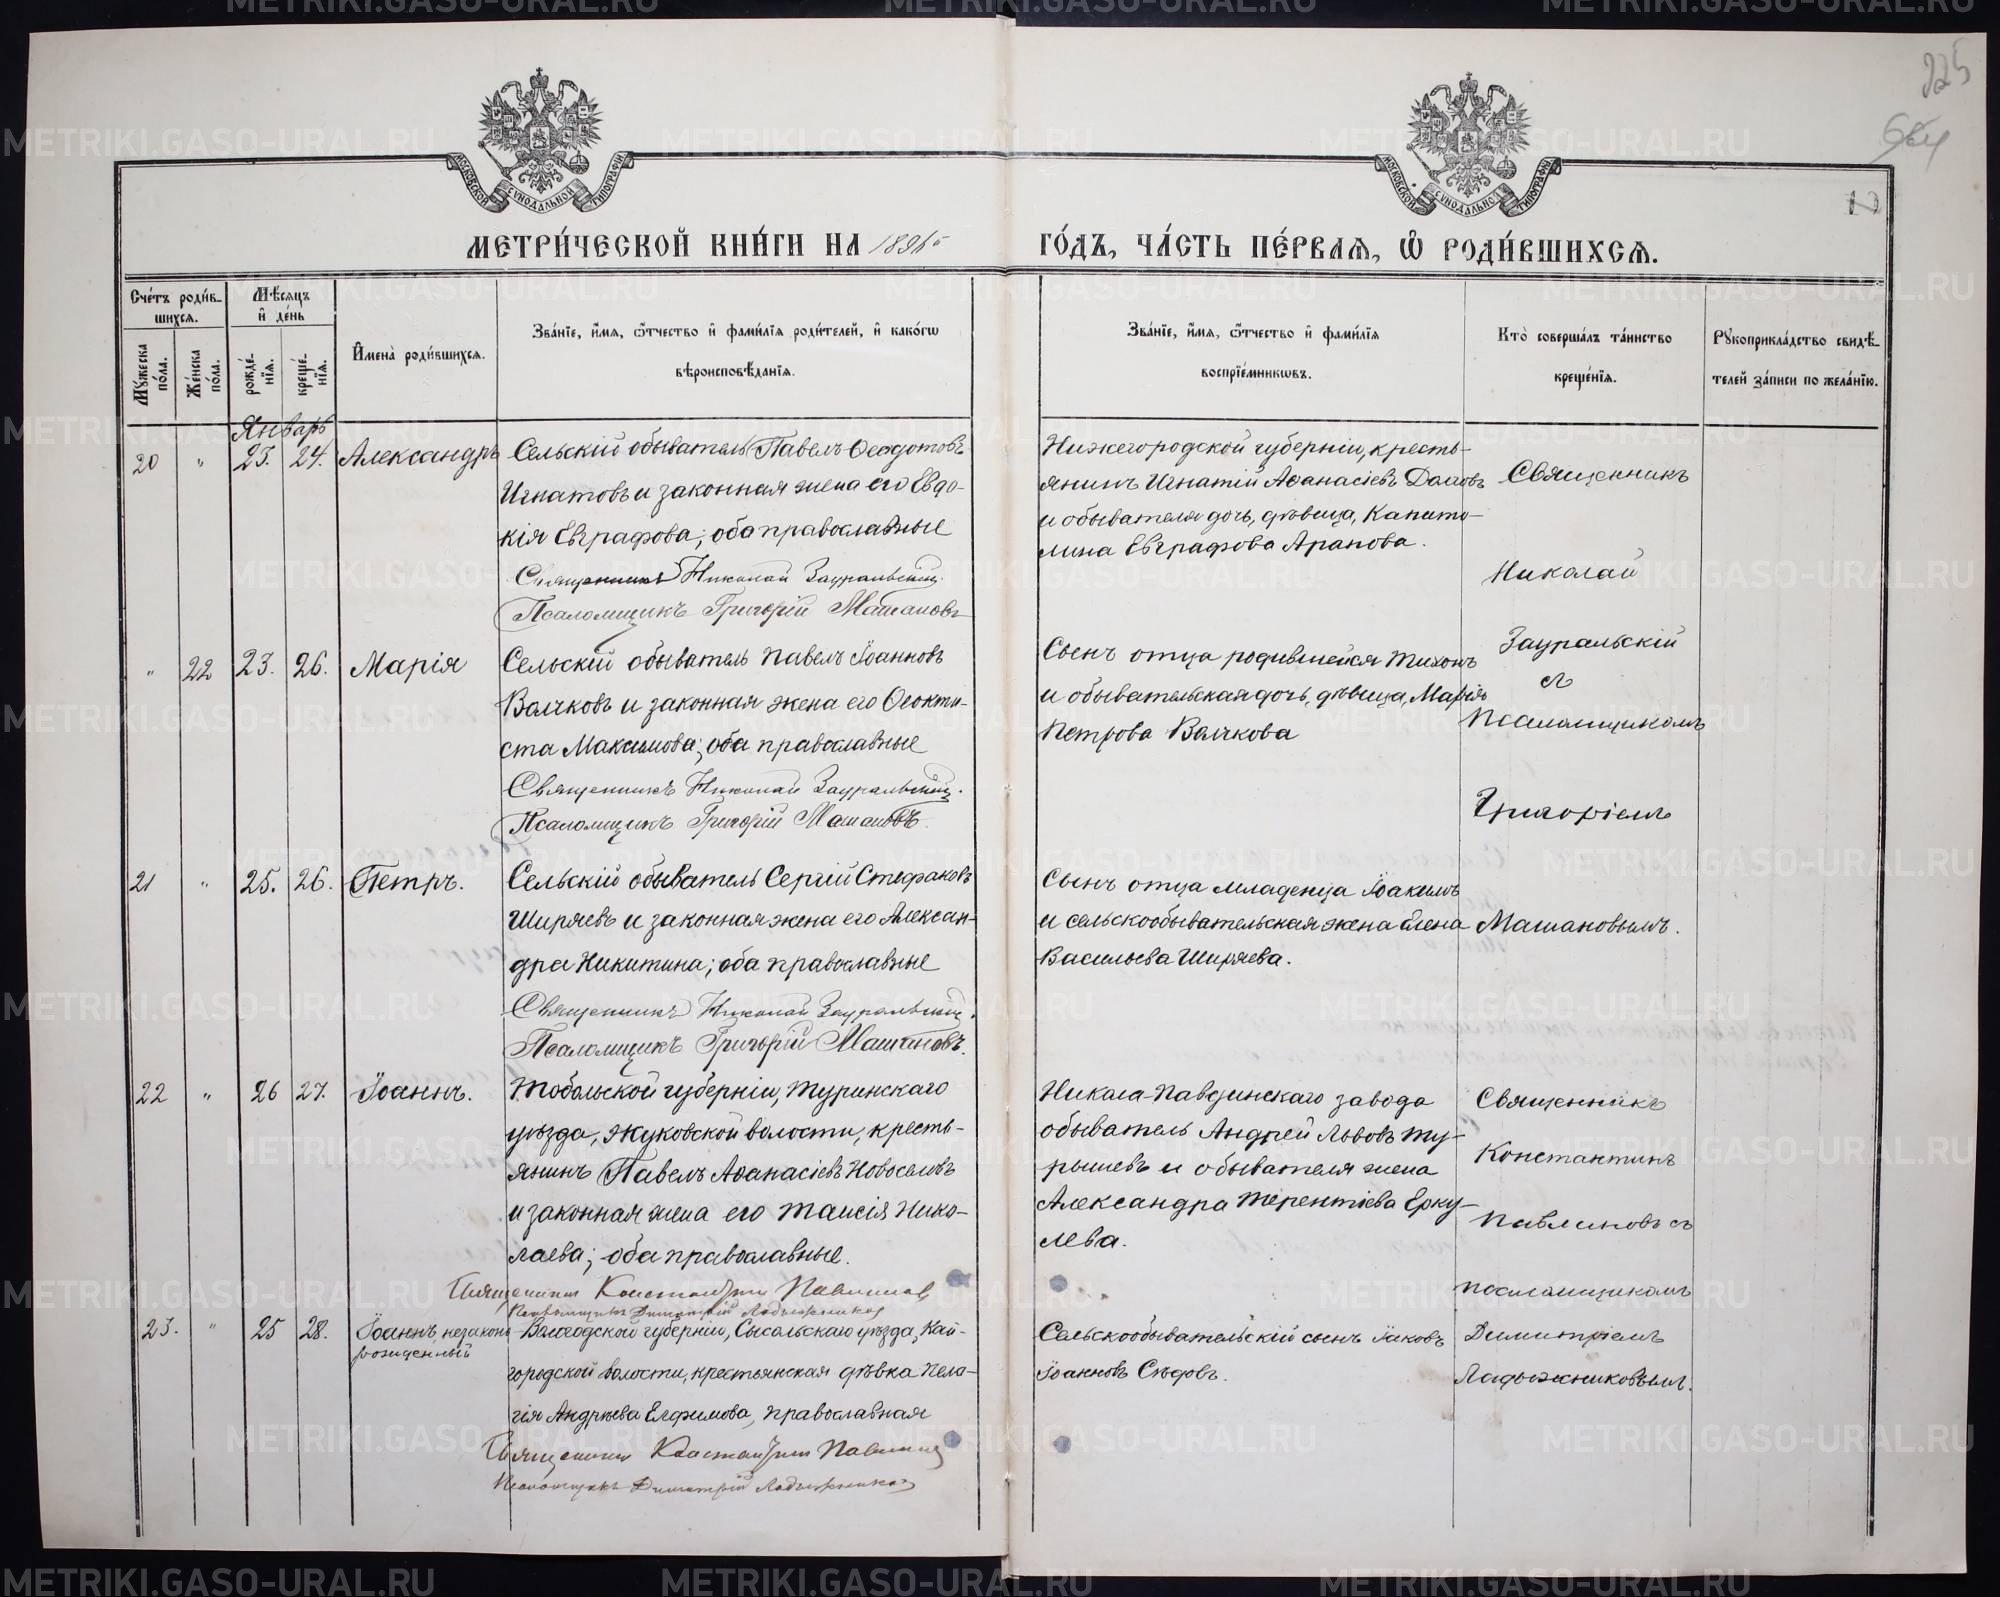 225
МОСКОВСКОЙ СѴНОДАЛЬНОЙ ТИПОГРАФІИ
МОСКОВСКОЙ СѴНОДАЛЬНОЙ ТИПОГРАФІИ
МЕТРИ́ЧЕСКОЙ КНИ́ГИ НА
ГО́ДЪ, ЧА́СТЬ ПЕ́РВАѦ, Ѽ РОДИ́ВШИХСѦ.
Сче́тъ роди́в-
шихсѧ.
Мꙋжеска по́ла.
Же́нска по́ла.
Мѣ́сѧцъ и҆ де́нь
рожде́-нїѧ.
креще́-нїѧ.
И҆мена̀ роди́вшихсѧ.
Зва́нїе, и҆́мѧ, ѻ҆́тчество и҆ фами́лїѧ роди́телей, и҆ како́гѡ
вѣроисповѣ́данїѧ.
Зва́нїе, и҆́мѧ, ѻ҆́тчество и҆ фами́лїѧ
воспрїе́мникѡвъ.
Кто̀ соверша́лъ та́инство
креще́нїѧ.
Рꙋкоприкла́дство свидѣ́-
телей за́писи по жела́нїю.
Январь
20 " 23. 24. Александръ
Сельскій обыватель Павелъ Ѳеодотовъ
Игнатовъ и законная жена его Евдо-
кія Евграфова; оба православные
Священникъ Николай Зауральскій.
Псаломщикъ Григорій Машановъ
Нижегородской губерніи, кресть-
янинъ Игнатій Аѳанасіевъ
и обывателя дочь, дѣвица, Капито-
лина Евграфова Арапова.
Священникъ
Николай
Зауральскій
съ
Псаломщикомъ
Григоріемъ
Машановымъ.
" 22 23. 26. Марія
Сельскій обыватель Павелъ Іоанновъ
Волчковъ и законная жена его Ѳеокти-
ста Максимова; оба православные
Священникъ Николай Зауральскій.
Псаломщикъ Григорій Машановъ.
Сынъ отца родившейся Тихонъ
и обывательская дочь, дѣвица, Марія
Петрова Волчкова
21 " 25. 26. Петръ.
Сельскій обыватель Сергій Стефановъ
Ширяевъ и законная жена его Алексан-
дра Никитина; оба православные
Священникъ Николай Зауральскій.
Псаломщикъ Григорій Машановъ.
Сынъ отца младенца Іоакимъ
и сельскообывательская жена Елена
Васильева Ширяева.
22 " 26 27. Іоаннъ.
Тобольской губерніи, Туринскаго
уѣзда, Жуковской волости, кресть-
янинъ Павелъ Аѳанасіевъ Новоселовъ
и законная жена его Таисія Нико-
лаева; оба православные.
Священникъ Константинъ Павлиновъ
Псаломщикъ Димитрій Ладыжниковъ
Никола-Павдинскаго завода
обыватель Андрей Львовъ Ту-
рышевъ и обывателя жена
Александра Терентіева Ерку-
лева.
Священникъ
Константинъ
Павлиновъ съ
псаломщикомъ
Димитріемъ
Ладыжниковымъ.
23. " 25 28. Іоаннъ незаконно
рожденный
Вологодской губерніи, Сысольскаго уѣзда, Кай-
городской волости, крестьянская дѣвка Пела-
гія Андреева Елфимова, православная
Священникъ Константинъ Павлиновъ
Псаломщикъ Димитрій Ладыжниковъ
Сельскообывательскій сынъ Іаковъ
Іоанновъ Сѣдовъ.
METRIKI.GASO-URAL.RU